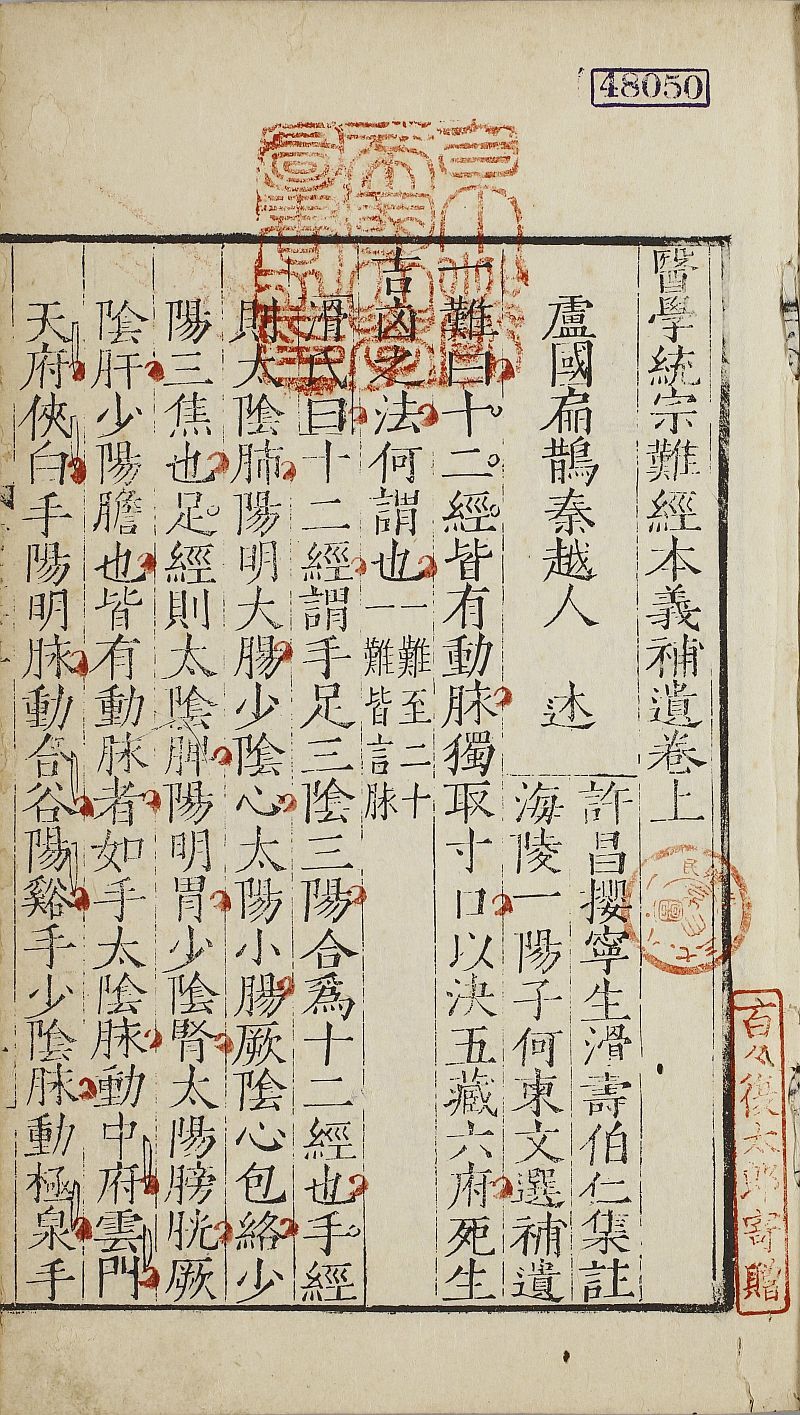 48050
醫學統宗難經本義補遺卷上
盧國扁鵲秦越人 述
許昌攖寧生滑壽伯仁集註
海陵一陽子何柬文選補遺
一難曰十二經皆有動脉獨取寸口以決五藏六府死生
吉凶之法何謂也
一難至二十
一難皆言脉
滑氏曰十二經謂手足三陰三陽合爲十二經也手經
則太陰肺陽明大腸少陰心太陽小腸厥陰心包絡少
陽三焦也足經則太陰脾陽明胃少陰腎太陽膀胱厥
陰肝少陽膽也皆有動脉者如手太陰脉動中府雲門
天府俠白手陽明脉動合谷陽谿手少陰脉動極泉手
百々復太郎寄贈